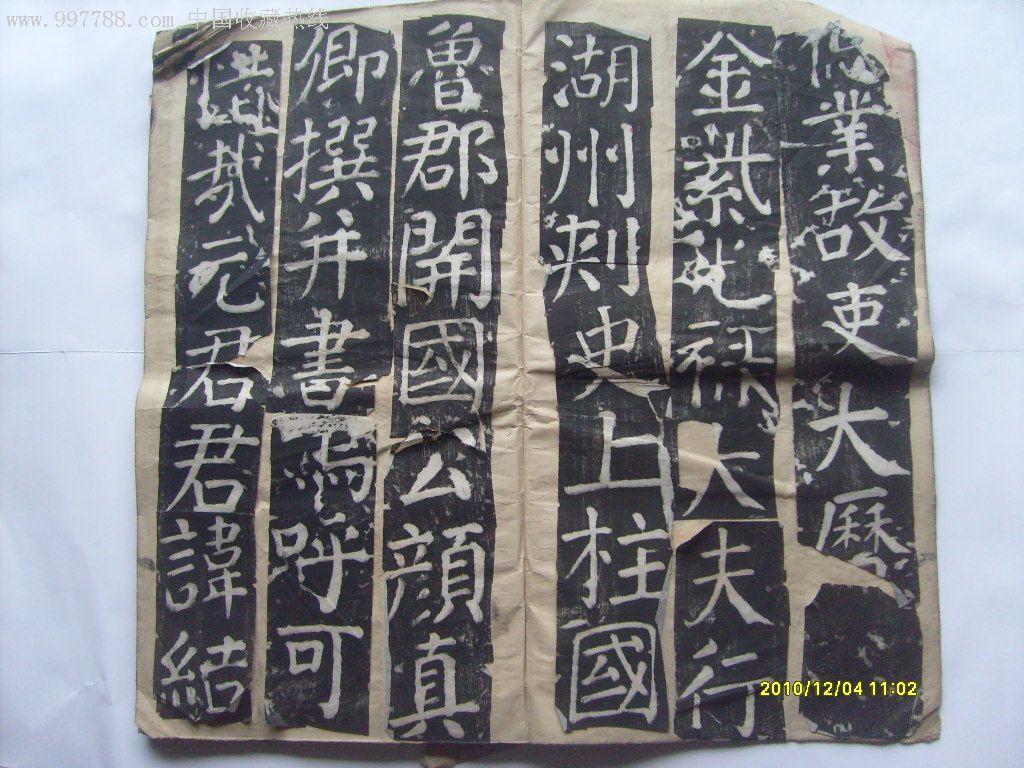 www.997788.com 中国收藏热线
業故吏大曆
金紫光祿大夫行
湖州刾史上柱國
魯郡開國公顔真
卿撰并書嗚呼可
惜哉元君君諱結
2010/12/04 11:02